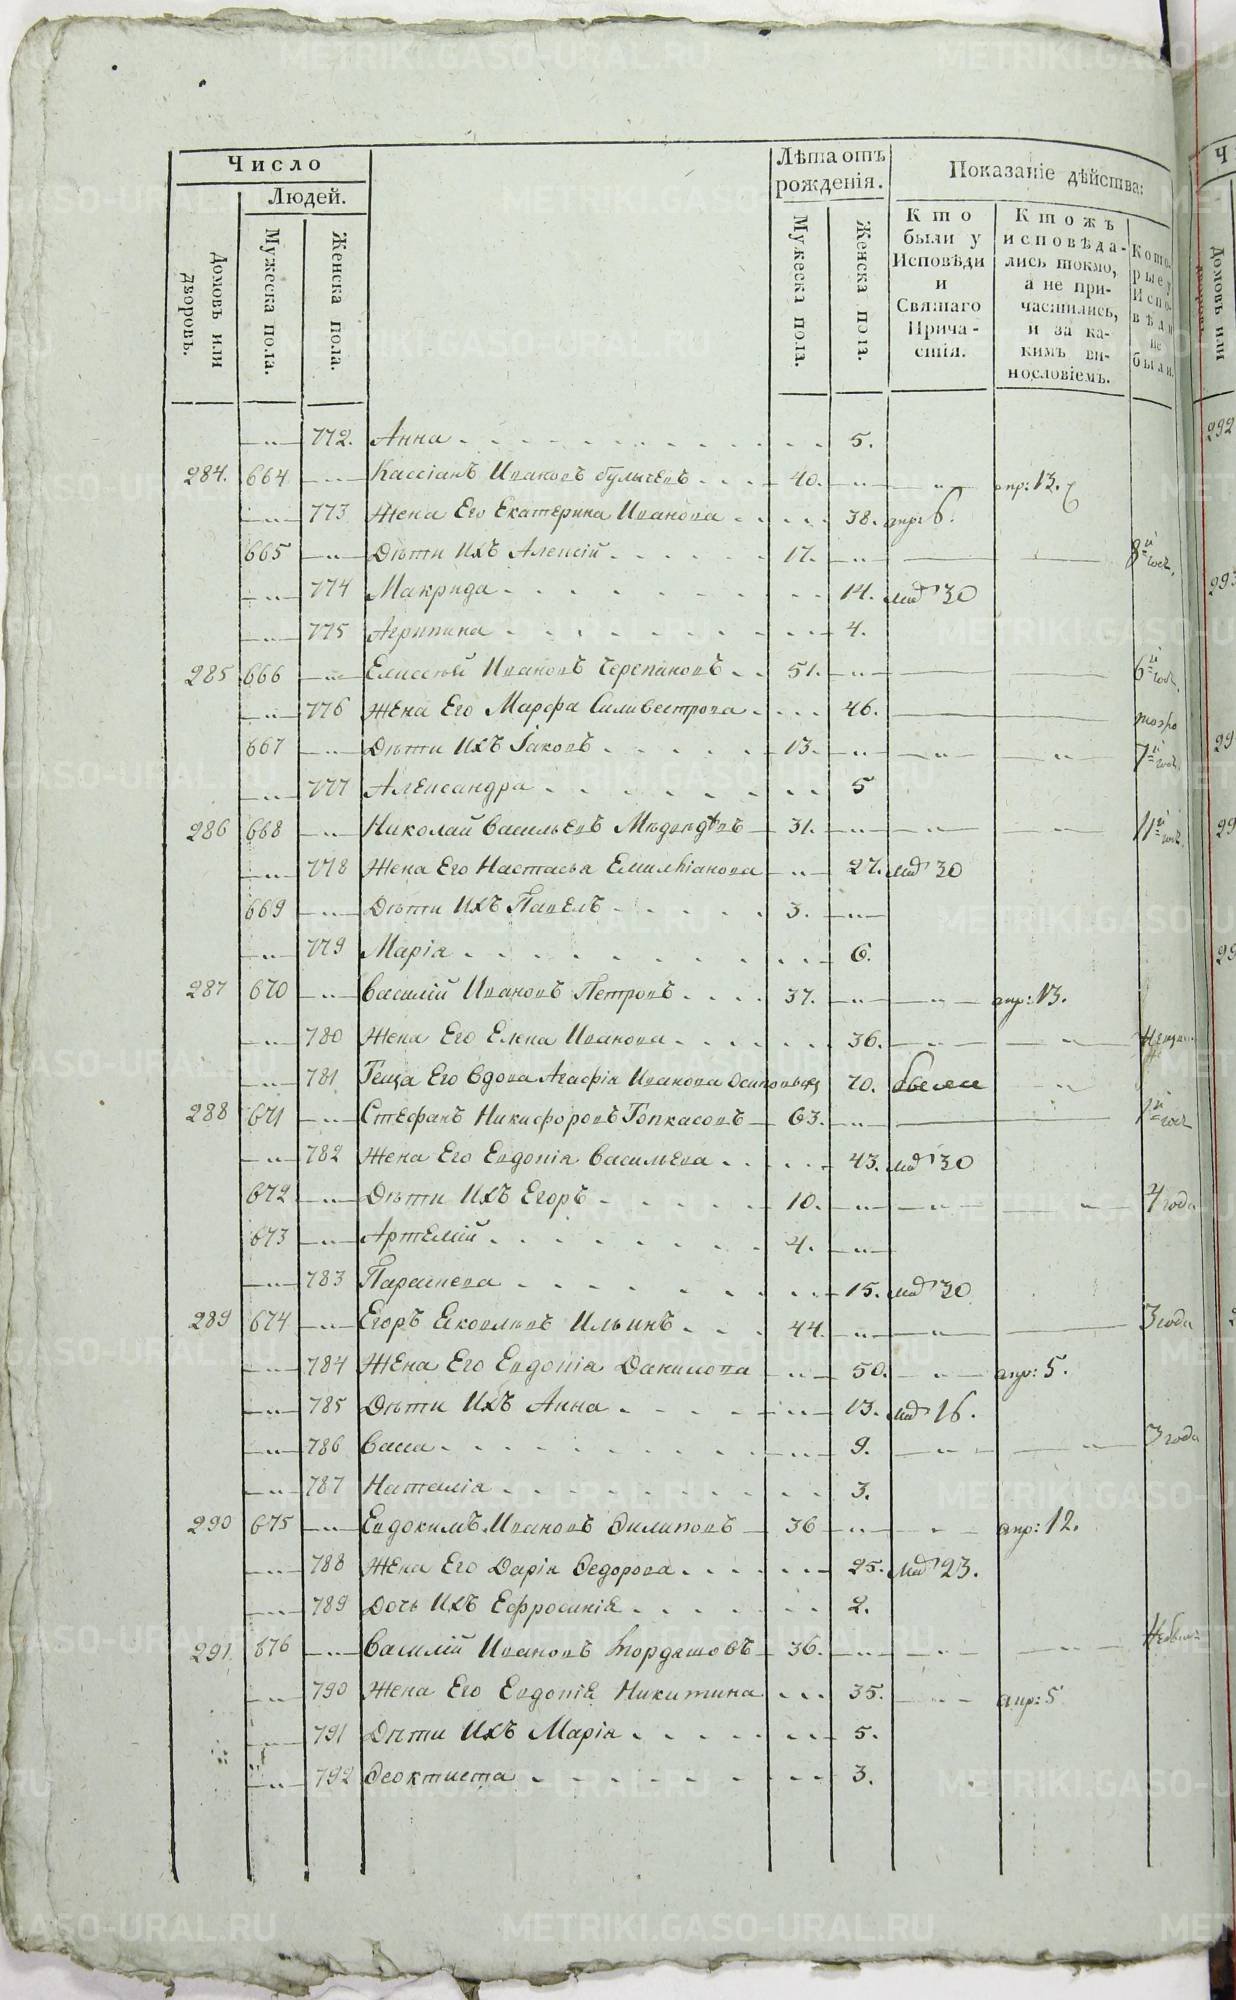 Число
Людей.
Домовъ или дворовъ.
Мужеска пола.
Женска пола.
Лѣта отъ рожденія.
Мужеска пола.
Женска пола.
Показаніе дѣйства:
Кто были у Исповѣди и Святаго Причастія.
Ктожъ исповѣдались токмо, а не причастились, и за какимъ винословіемъ.
Которые у Исповѣди не были.
772. Анна 5.
284. 664 Кассіанъ Ивановъ Булычевъ 40. апр: 13.
773 Жена Его Екатерина Иванова 38. апр: 6.
665 Дѣти Ихъ Алексій 17. 8й
774 Макрида 14. 30
775 Агрипина 4.
285 666 Елисѣй Ивановъ Черепановъ 51. 6й
776 Жена Его Марфа Сильвестрова 46.
667 Дѣти Ихъ Іаковъ 13. 7й
777 Александра 5
286 668 Николай Васильевъ 31. 11й
778 Жена Его Настасья Емиліянова 27. 30
669 Дѣти Ихъ Павелъ 3.
779 Марія 6.
287 670 Василій Ивановъ Петровъ 37. апр: 13.
780 Жена Его Елена Иванова 36.
781 Теща Его Вдова Агафія Иванова 70.
288 671 Стефанъ Никифоровъ 63.
782 Жена Его Евдокія Васильева 43. 30
672 Дѣти Ихъ Егоръ 10. 4 года
673 Артемій 4.
783 Парасковa 15. 30
289 674 Егоръ Яковлевъ Ильинъ 44. 3 года
784 Жена Его Евдокія Данилова 50. апр: 5.
785 Дѣти Ихъ Анна 13. 16.
786 Васса 9. 3 года
787 Наталія 3.
290 675 Евдокимъ Ивановъ Филиповъ 36 апр: 12.
788 Жена Его Дарія Федорова 25. 23.
789 Дочь Ихъ Ефросинія 2.
291 676 Василій Ивановъ 36.
790 Жена Его Евдокія Никитина 35. апр: 5
791 Дѣти Ихъ Марія 5.
792 Феоктиста 3.